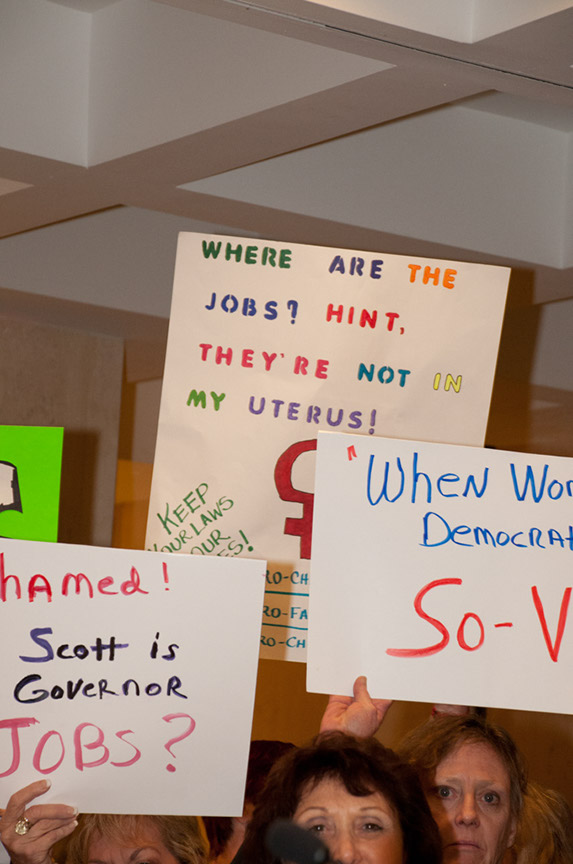 WHERE ARE THE
JOBS? HINT,
THEY'RE NOT IN
MY UTERUS!
KEEP
YOUR LAWS
!
RO-CH
RO-FA
RO-CH
"WHEN WO
DEMOCRAT
SO-V
hamed!
Scott is
GOVERNOR
JOBS?